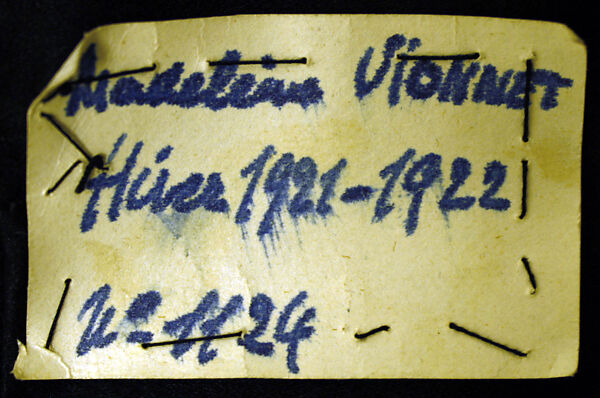 Madeleine Vionnet
Hiver 1921-1922
No 1124